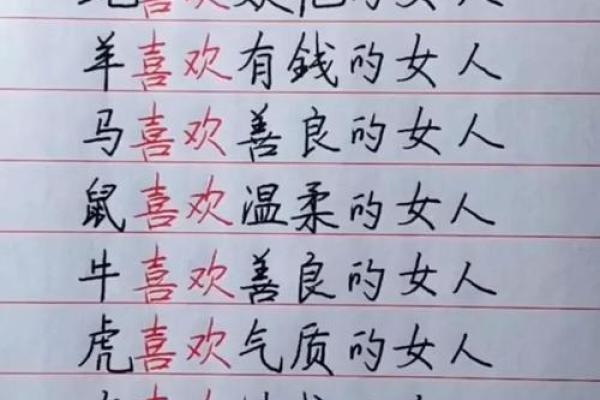 喜欢的女人
羊喜欢有钱的女人
马喜欢善良的女人
鼠喜欢温柔的女人
牛喜欢善良的女人
虎喜欢气质的女人
喜欢的女人